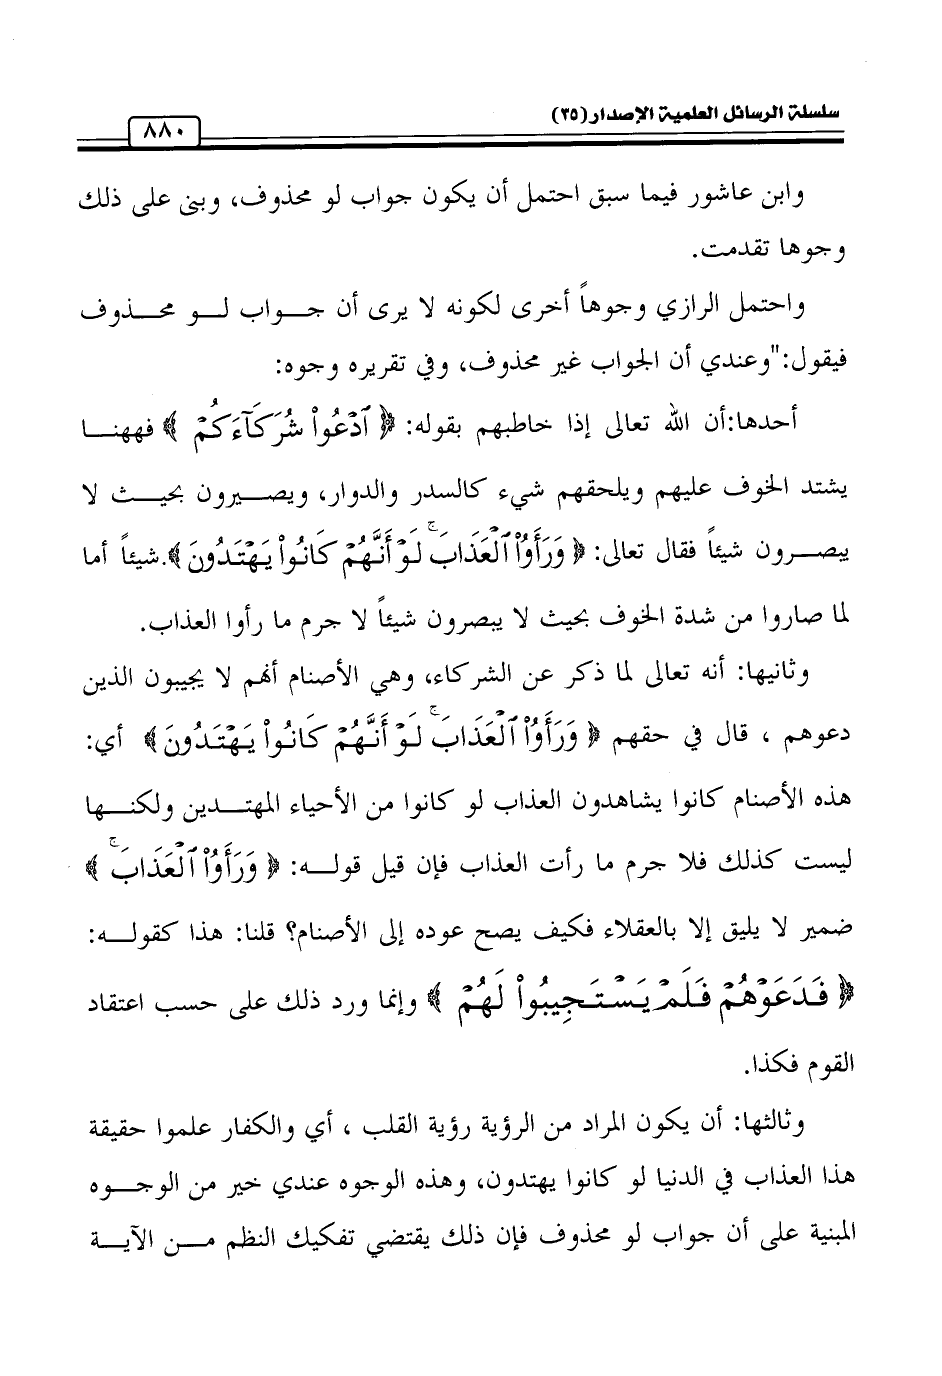 سلسلة الرسائل العلمية الإصدار (٣٥)
٨٨٠
وابن عاشور فيما سبق احتمل أن يكون جواب لو محذوف، وبنى على ذلك
وجوها تقدمت.
واحتمل الرازي وجوهاً أخرى لكونه لا يرى أن جـــواب لـــو محـــذوف
فيقول:"وعندي أن الجواب غير محذوف، وفي تقريره وجوه:
أحدها:أن الله تعالى إذا خاطبهم بقوله: ﴿ ٱدْعُوا۟ شُرَكَآءَكُمْ ﴾ فههنـــا
يشتد الخوف عليهم ويلحقهم شيء كالسدر والدوار، ويصـــيرون بحيـــث لا
يبصرون شيئاً فقال تعالى: ﴿ وَرَأَوُا۟ ٱلْعَذَابَ ۚ لَوْ أَنَّهُمْ كَانُوا۟ يَهْتَدُونَ ﴾.شيئاً أما
لما صاروا من شدة الخوف بحيث لا يبصرون شيئاً لا جرم ما رأوا العذاب.
وثانيها: أنه تعالى لما ذكر عن الشركاء، وهي الأصنام أنهم لا يجيبون الذين
دعوهم ، قال في حقهم ﴿ وَرَأَوُا۟ ٱلْعَذَابَ ۚ لَوْ أَنَّهُمْ كَانُوا۟ يَهْتَدُونَ ﴾ أي:
هذه الأصنام كانوا يشاهدون العذاب لو كانوا من الأحياء المهتـــدين ولكنـــها
ليست كذلك فلا جرم ما رأت العذاب فإن قيل قولـــه: ﴿ وَرَأَوُا۟ ٱلْعَذَابَ ۚ ﴾
ضمير لا يليق إلا بالعقلاء فكيف يصح عوده إلى الأصنام؟ قلنا: هذا كقولـــه:
﴿ فَدَعَوْهُمْ فَلَمْ يَسْتَجِيبُوا۟ لَهُمْ ﴾ وإنما ورد ذلك على حسب اعتقاد
القوم فكذا.
وثالثها: أن يكون المراد من الرؤية رؤية القلب ، أي والكفار علموا حقيقة
هذا العذاب في الدنيا لو كانوا يهتدون، وهذه الوجوه عندي خير من الوجـــوه
المبنية على أن جواب لو محذوف فإن ذلك يقتضي تفكيك النظم مـــن الآيـــة